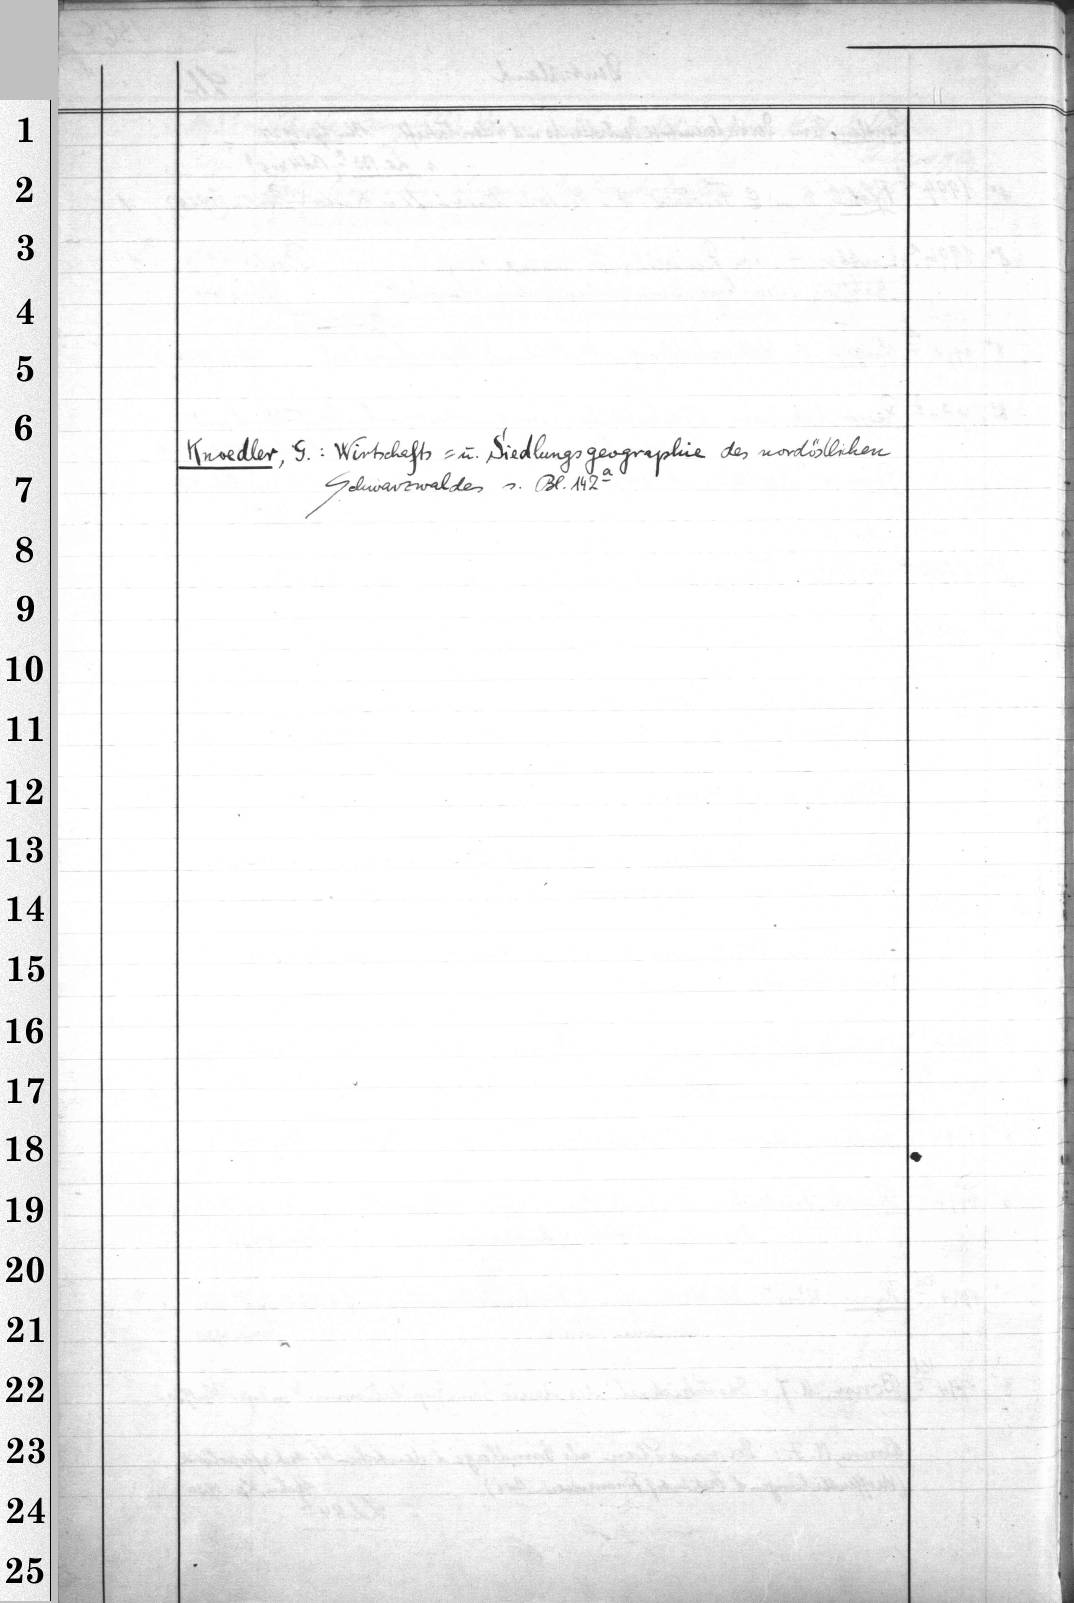 1
2
3
4
5
6
Knoedler, G.: Wirtschafts = u. Siedlungsgeographie des nordöstlichen
7
Schwarzwaldes s. Bl. 142a
8
9
10
11
12
13
14
15
16
17
18
19
20
21
22
23
24
25